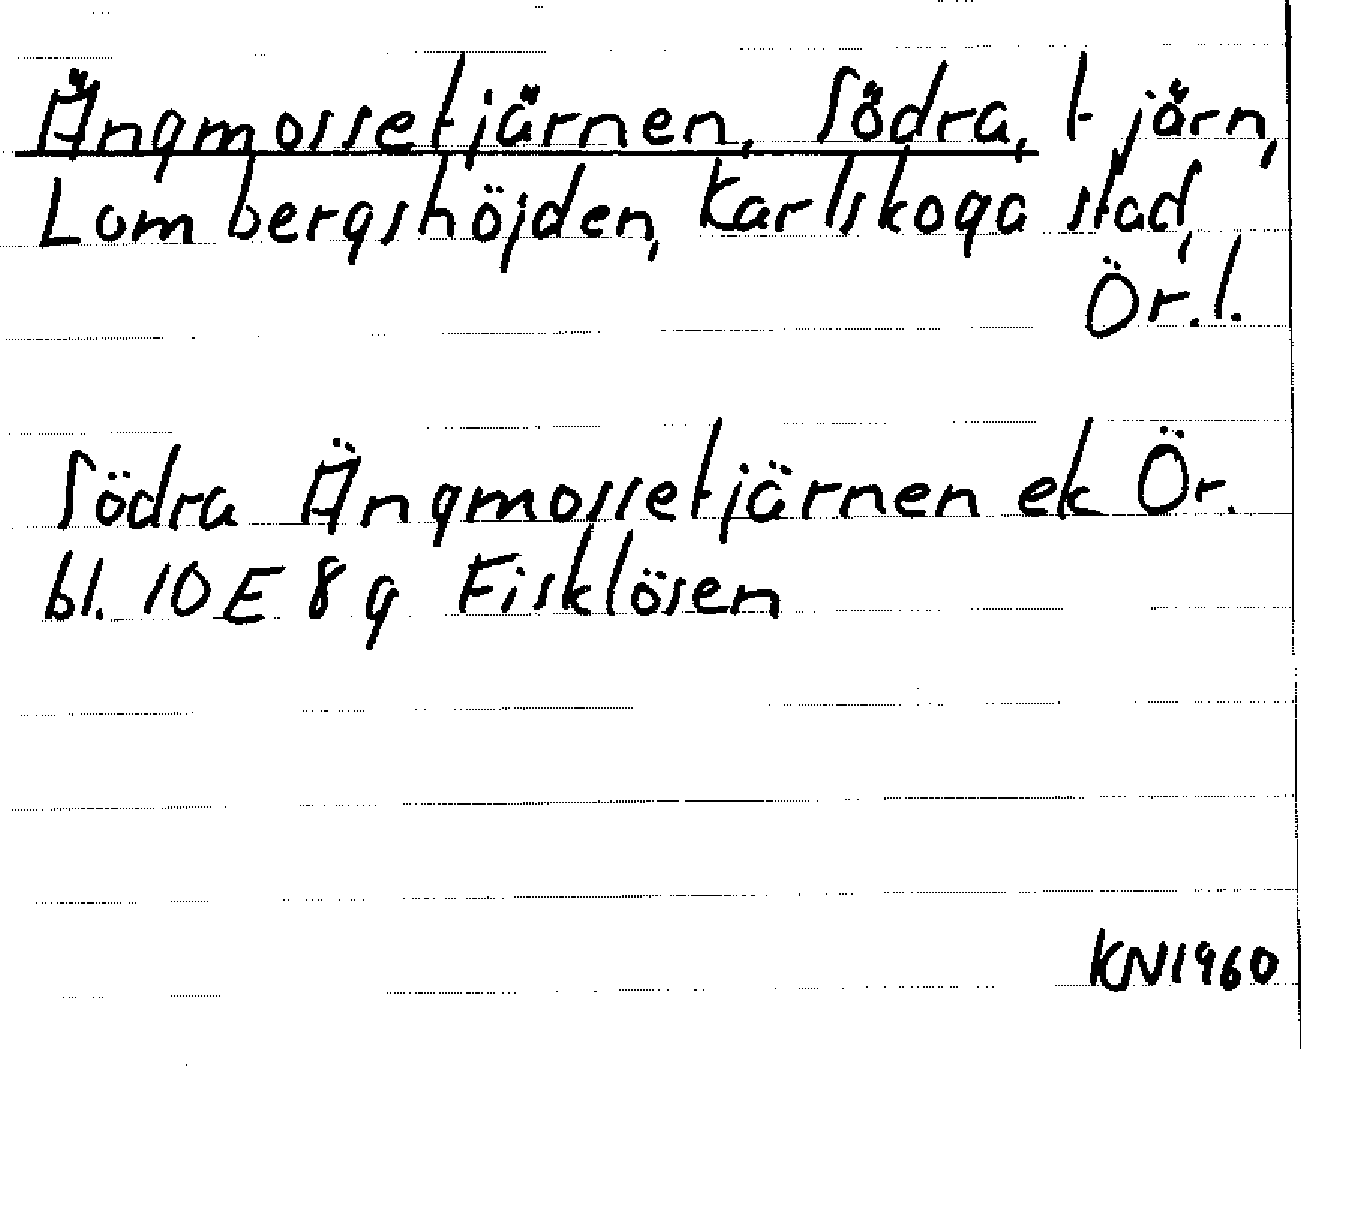 Ängmossetjärnen, Södra, tjärn,
Lombergshöjden, Karlskoga stad,
Ör.l.
Södra Ängmossetjärnen ek Ör.
bl. 10E 8g Fisklösen
KN1960